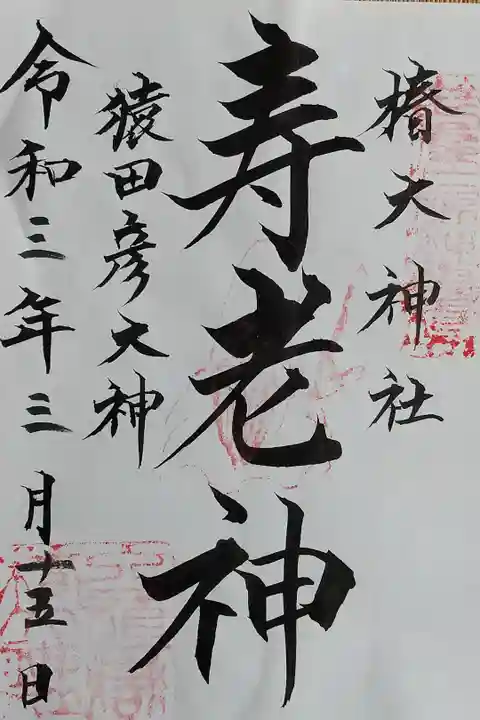 椿大神社
寿老神
猿田彦大神
令和三年三月十五日